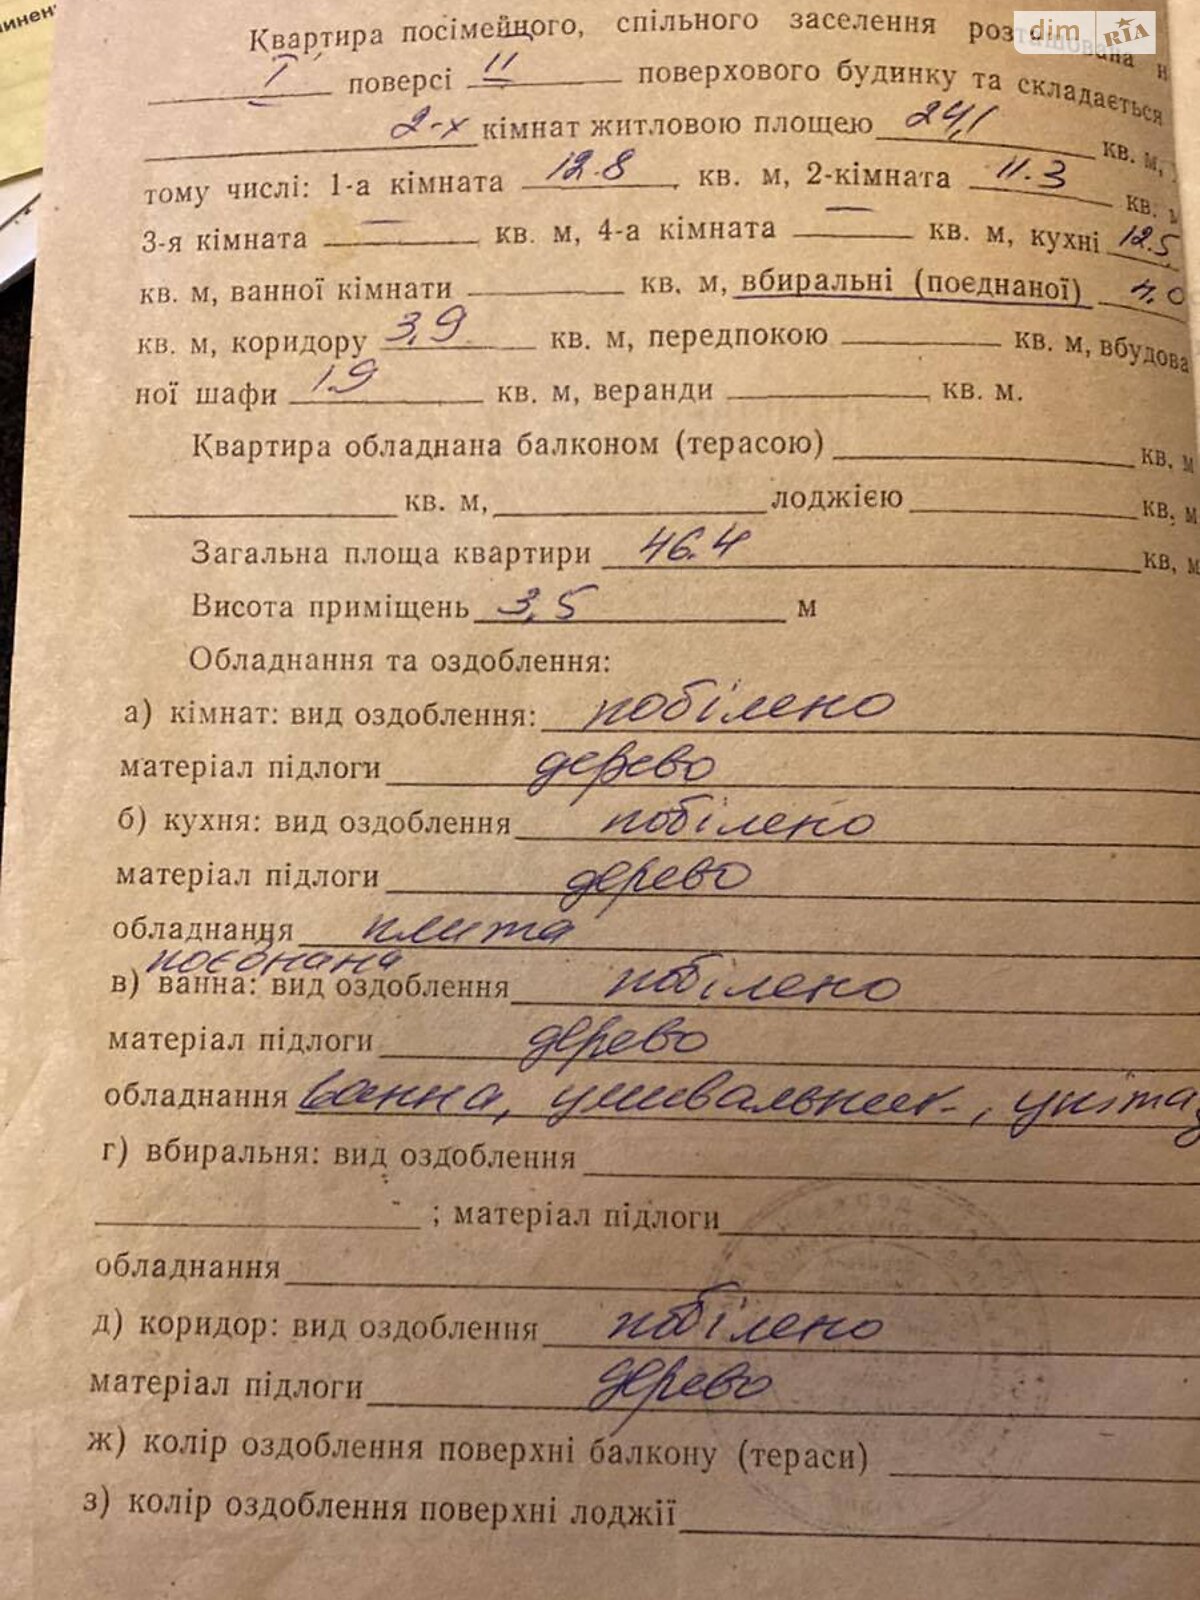 dim RIA
Квартира посімейного, спільного заселення розташована н
I поверсі II поверхового будинку та складається
2-х кімнат житловою площею 24,1 кв. м,
тому числі: 1-а кімната 12.8 кв. м, 2-кімната 11.3 кв. м
3-я кімната — кв. м, 4-а кімната — кв. м, кухні 12.5
кв. м, ванної кімнати кв. м, вбиральні (поєднаної) 4.0
кв. м, коридору 3,9 кв. м, передпокою кв. м, вбудова
ної шафи 1.9 кв. м, веранди кв. м.
Квартира обладнана балконом (терасою) кв. м
кв. м, лоджією кв. м
Загальна площа квартири 46.4 кв, м
Висота приміщень 3,5 м
Обладнання та оздоблення:
а) кімнат: вид оздоблення: побілено
матеріал підлоги дерево
б) кухня: вид оздоблення побілено
матеріал підлоги дерево
обладнання плита
поєднана
в) ванна: вид оздоблення побілено
матеріал підлоги дерево
обладнання ванна, умивальник, унітаз
г) вбиральня: вид оздоблення
; матеріал підлоги
обладнання
д) коридор: вид оздоблення побілено
матеріал підлоги дерево
ж) колір оздоблення поверхні балкону (тераси)
з) колір оздоблення поверхні лоджії